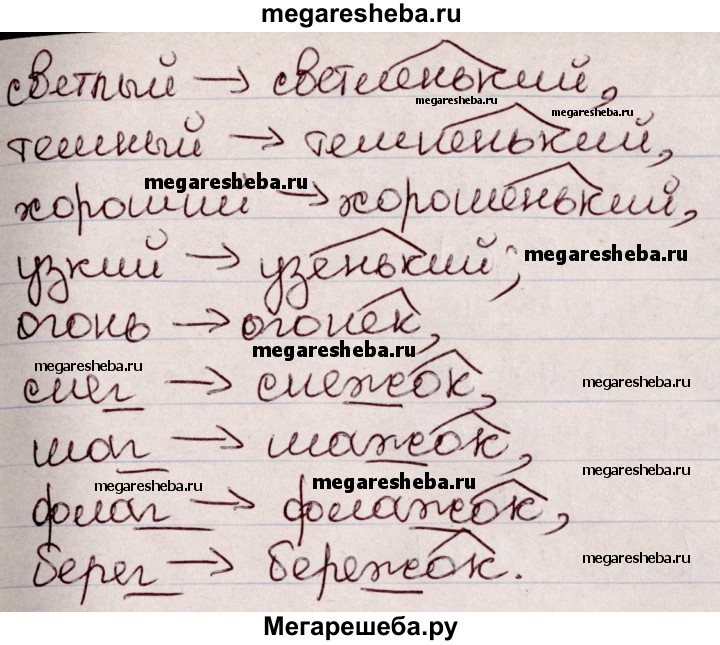 megaresheba.ru
светлый → светленький,
megaresheba.ru
megaresheba.ru
темный → темненький,
megaresheba.ru
хороший → хорошенький,
узкий → узенький;
megaresheba.ru
огонь → огонек,
megaresheba.ru
megaresheba.ru
megaresheba.ru
снег → снежок,
шаг → шажок,
megaresheba.ru
megaresheba.ru
megaresheba.ru
флаг → флажок,
megaresheba.ru
берег → бережок.
Мегарешеба.ру